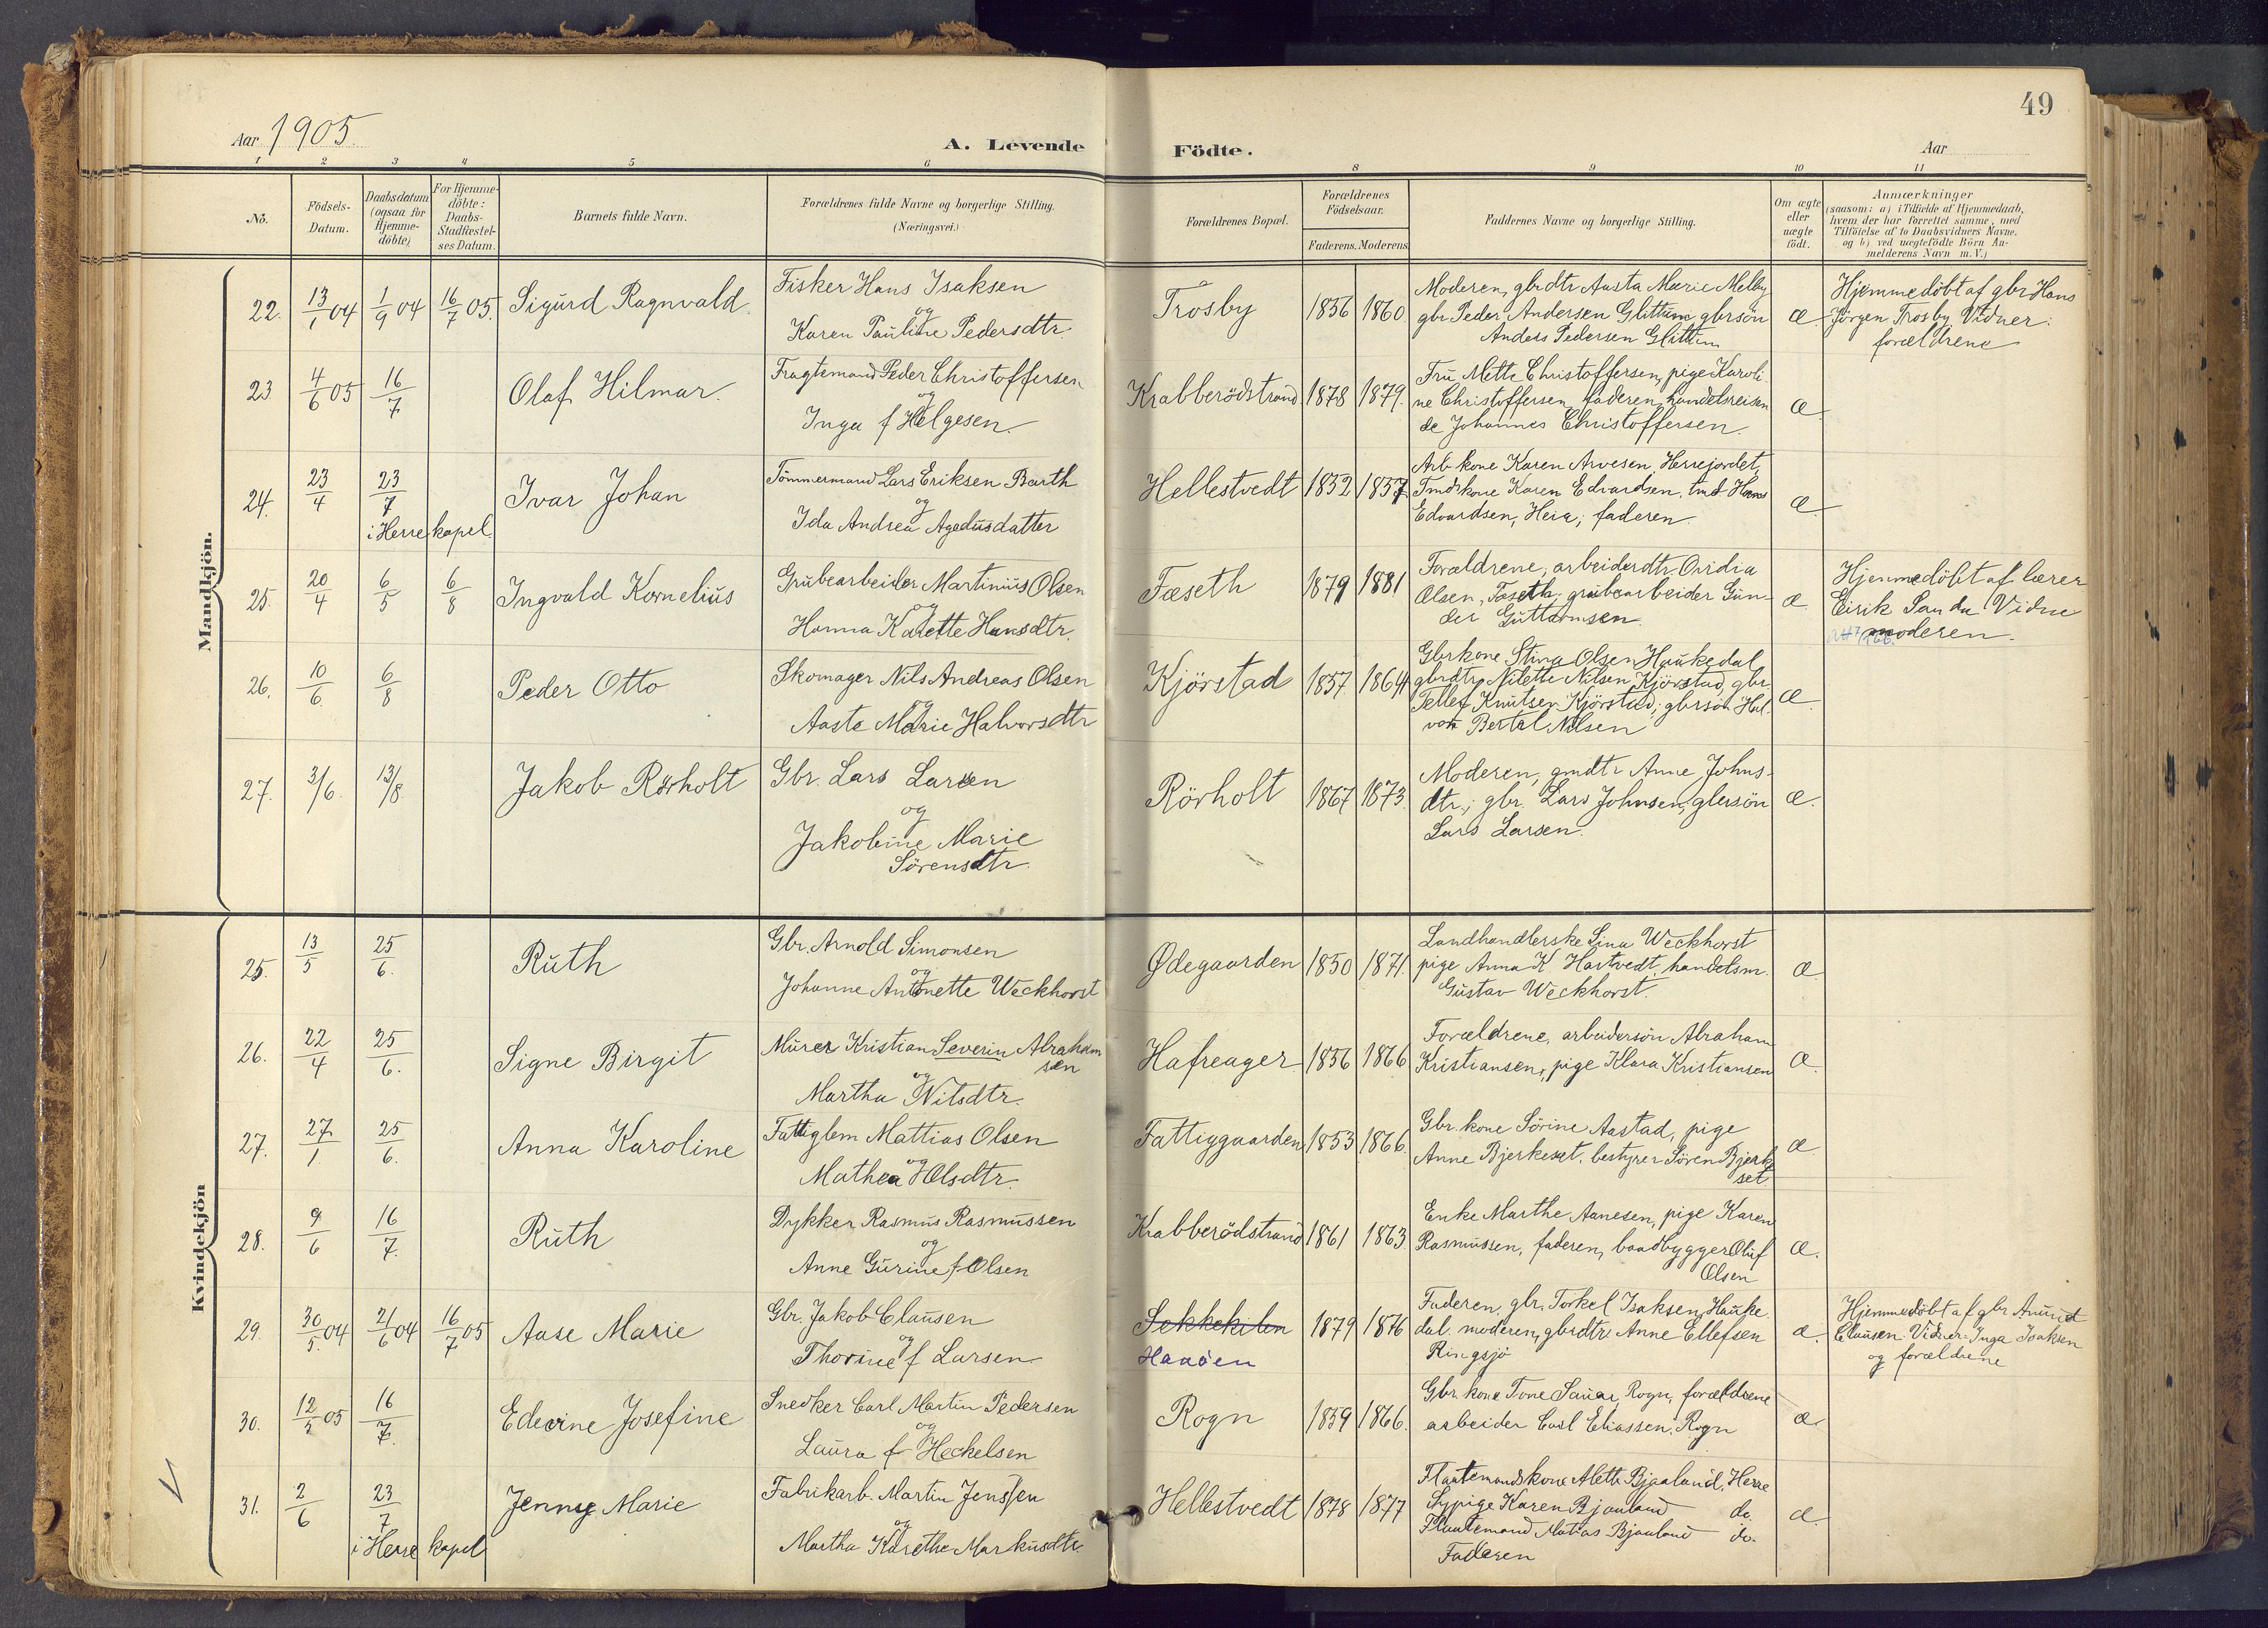 49
Aar 1905.
A. Levende Födte.
Aar
1 2 3 4 5 6 8 9 10 11
No.
Födsels-Datum.
Daabsdatum (ogsaa for Hjemme-döbte)
For Hjemme-döbte: Daabs-Stadfæstel-ses Datum.
Barnets fulde Navn.
Forældrenes fulde Navne og borgerlige Stilling.
(Næringsvei.)
Forældrenes Bopæl.
Forældrenes Födselsaar.
Faderens. Moderens
Faddernes Navne og borgerlige Stilling.
Om ægte eller uægte födt.
Anmærkninger
(saasom: a) i Tilfælde af Hjemmedaab,
hvem der har forrettet samme, med
Tilföielse af to Daabsvidners Navne.
og b) ved uægtefödte Börn An-
melderens Navn m.V.)
Mandkjön.
22. 13/1 04 1/9 04 16/7 05. Sigurd Ragnvald.
Fisker Hans Isaksen
og
Karen Pauline Pedersdtr.
Trosby 1856 1860
Moderen, gbrdtr Aasta Marie Melby
gbr Peder Andersen Glittum, gbrsön
Anders Pedersen Glittum
æ.
Hjemmedöbt af gbr Hans
Jörgen Trosby Vidner:
forældrene
23 4/6 05 16/7 Olaf Hilmar.
Fragtemand Peder Christoffersen
og
Inga f Helgesen
Krabberödstrand 1878 1879.
Fru Mette Christoffersen, pige Karoli
ne Christoffersen, faderen, handelsreisen
de Johannes Christoffersen.
æ
24. 23/4 23/7 Ivar Johan
i Herre kapel.
Tömmermand Lars Eriksen Barth
og
Ida Andrea Agedusdatter
Hellestvedt 1852 1857
Arb kone Karen Arvesen, Herrejordet,
Tmdskone Karen Edvardsen, tmd Hans
Edvardsen, Heia; faderen.
æ
25. 20/4 6/5 6/8 Ingvald Kornelius
Grubearbeider Martinius Olsen
og
Hanna Karette Hansdtr.
Fæseth 1879 1881
Forældrene, arbeiderdtr Ovidia
Olsen, Fæseth, grubearbeider Gun-
der Guttormsen.
æ
Hjemmedöbt af lærer
Eirik Sanda Vidne
moderen.
26. 10/6 6/8 Peder Otto
Skomager Nils Andreas Olsen
og
Aaste Marie Halvorsdtr
Kjörstad 1857 1864
Gbrkone Stina Olsen Haukedal
gbrdtr Nilette Nilsen Kjörstad, gbr
Tellef Knutsen Kjörstad; gbrsön Hal
vor Bertel Nilsen
æ.
27. 3/6. 13/8 Jakob Rörholt
Gbr. Lars Larsen
og
Jakobine Marie
Sörensdtr.
Rörholt 1867 1873.
Moderen, gmdtr Anne Johns-
dtr.; gbr. Lars Johnsen, gbrsön
Lars Larsen.
æ.
Kvindekjön
25. 13/5 25/6. Ruth
Gbr. Arnold Simonsen
og
Johanne Antonette Weckhorst
Ødegaarden 1850 1871.
Landhandlerske Lina Weckhorst
pige Anna K Hartvedt, handelsm.
Gustav Weckhorst.
æ
26. 22/4 25/6. Signe Birgit
Murer Kristian Severin Abraham
sen
og
Martha Nilsdtr.
Hafreager 1856 1866
Forældrene, arbeidersön Abraham
Kristiansen, pige Klara Kristiansen
æ.
27. 27/1. 25/6. Anna Karoline
Fattiglem Mattias Olsen
og
Mathea Olsdtr.
Fattiggaarden 1853 1866.
Gbr. kone Sörine Aastad, pige
Anne Bjerkeset, bestyrer Sören Bjerke
set.
æ
28. 9/6 16/7. Ruth
Dykker Rasmus Rasmussen
og
Anne Gurine f Olsen
Krabberödstrand 1861 1863
Enke Marthe Aanesen, pige Karen
Rasmussen, faderen, baadbygger Oluf
Olsen
æ.
29. 30/5. 04 21/6 04 16/7 05 Aase Marie
Gbr. Jakob Clausen
og
Thorine f Larsen
Sekkekilen
Haaöen
1879 1876
Faderen, gbr. Torkel Isaksen Hauke
dal. moderen, gbrdtr Anne Ellefsen
Ringsjö
æ.
Hjemmedöbt af gbr Amund
Clausen. Vidner: Inga Isaksen
og forældrene
30. 12/5 05 16/7. Edevine Josefine
Snedker Carl Martin Pedersen
og
Laura f Heckelsen
Rogn 1859 1866.
Gbr. kone Tone Sauar, Rogn, forældrene
arbeider Carl Eliassen, Rogn
æ
31. 2/6 23/7 Jenny Marie
i Herre kapel
Fabrikarb. Martin Jenssen
og
Martha Karethe Markusdtr.
Hellestvedt 1878 1877
Flaatemandskone Aleth Bjaaland, Herre
Sypige Karen Bjaaland do.
Flaatemand Matias Bjaaland do.
Faderen
æ.